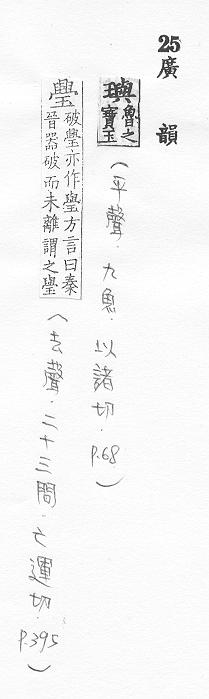 25廣韻
璵魯之寶玉(平聲.九魚.以諸切.P.68)
璺破璺亦作璺方言曰秦晉器破而未離謂之璺(去聲.二十三問.亡運切.P.395)